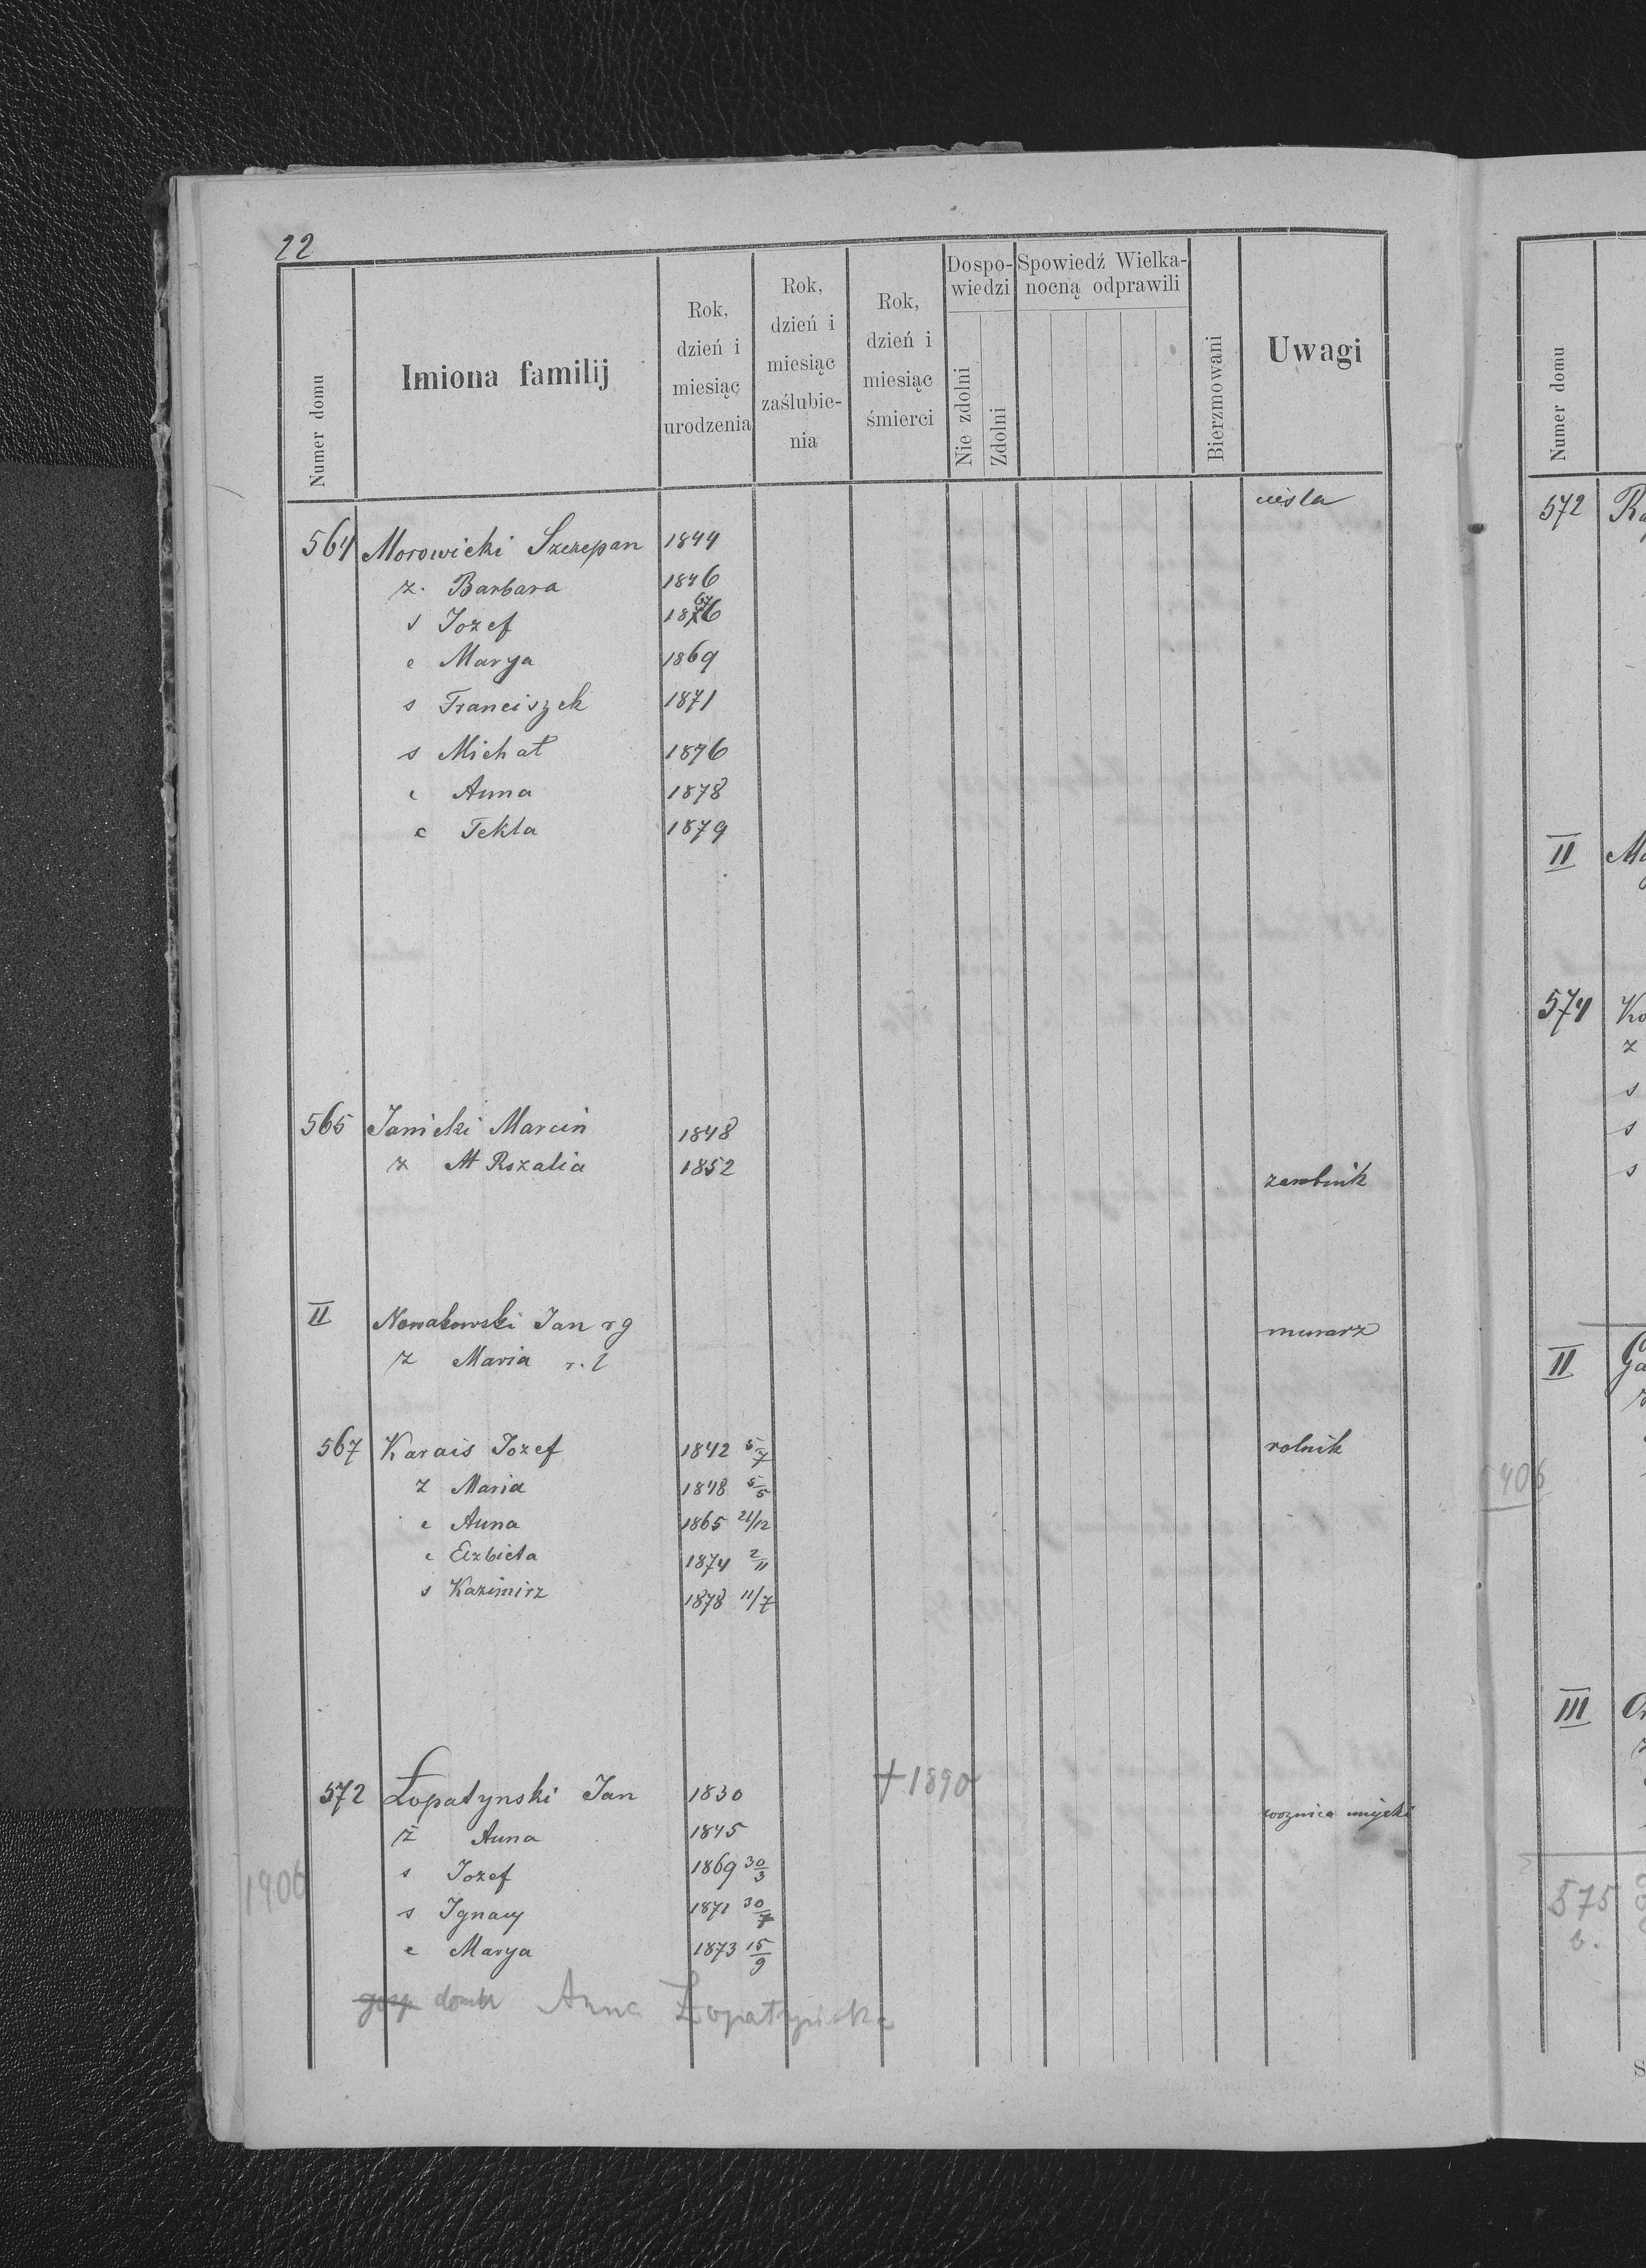 22
Numer domu
Imiona familij
Rok, dzień i miesiąc urodzenia
Rok, dzień i miesiąc zaślubienia
Rok, dzień i miesiąc śmierci
Dospowiedzi
Nie zdolni
Zdolni
Spowiedź Wielkanocną odprawili
Bierzmowani
Uwagi
cieśla
564 Morowicki Szczepan 1844
z. Barbara 1846
s Jozef 1867
c Marya 1869
s Franciszek 1871
s Michał 1876
c Anna 1878
c Tekla 1879
565 Janicki Marcin 1848
z M Rozalia 1852 zarobnik
II Nowakowski Jan rg murarz
z Maria r. l
567 Karais Jozef 1842 5/7 rolnik
z Maria 1848 5/5
c Anna 1865 21/12
c Elzbieta 1874 2/11
s Kazimirz 1878 11/7
572 Łopatynski Jan 1830 +1890 woznica miejski
ż Anna 1845
s Jozef 1869 30/3
1906
s Ignacy 1871 30/7
c Marya 1873 15/9
gosp Anna
Numer domu
572
II
574
z
s
s
s
II
III
575
b.